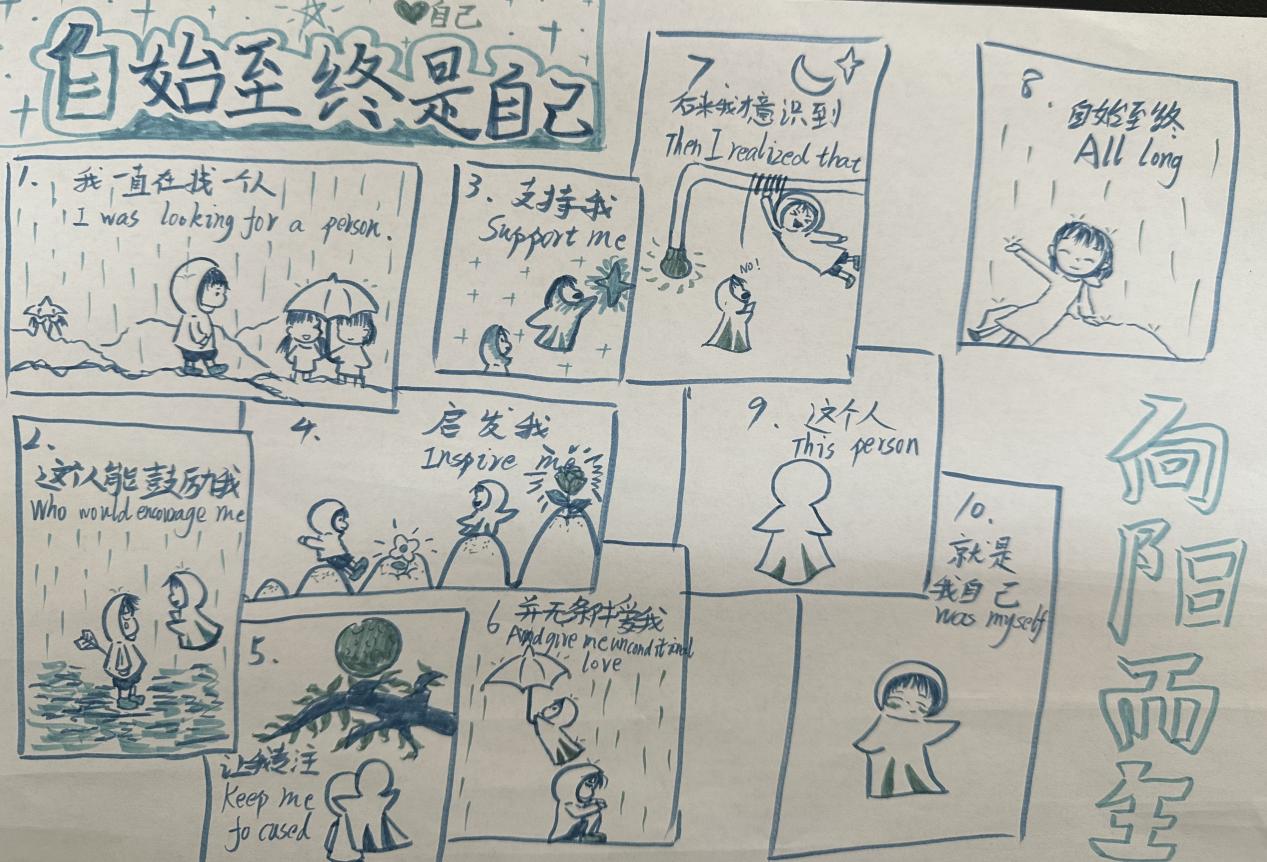 自己
自始至终是自己
1.
我一直在找一个人
I was looking for a person.
2.
这个人能鼓励我
Who would encouage me
3. 支持我
Support me
4.
启发我
Inspire me
5.
让我专注
Keep me
fo cused
6 并无条件爱我
And give me unconditional
love
7
后来我才意识到
Then I realized that
NO!
8.
自始至终
All long
9. 这个人
This person
10.
就是
我自己
was myself
向阳而生